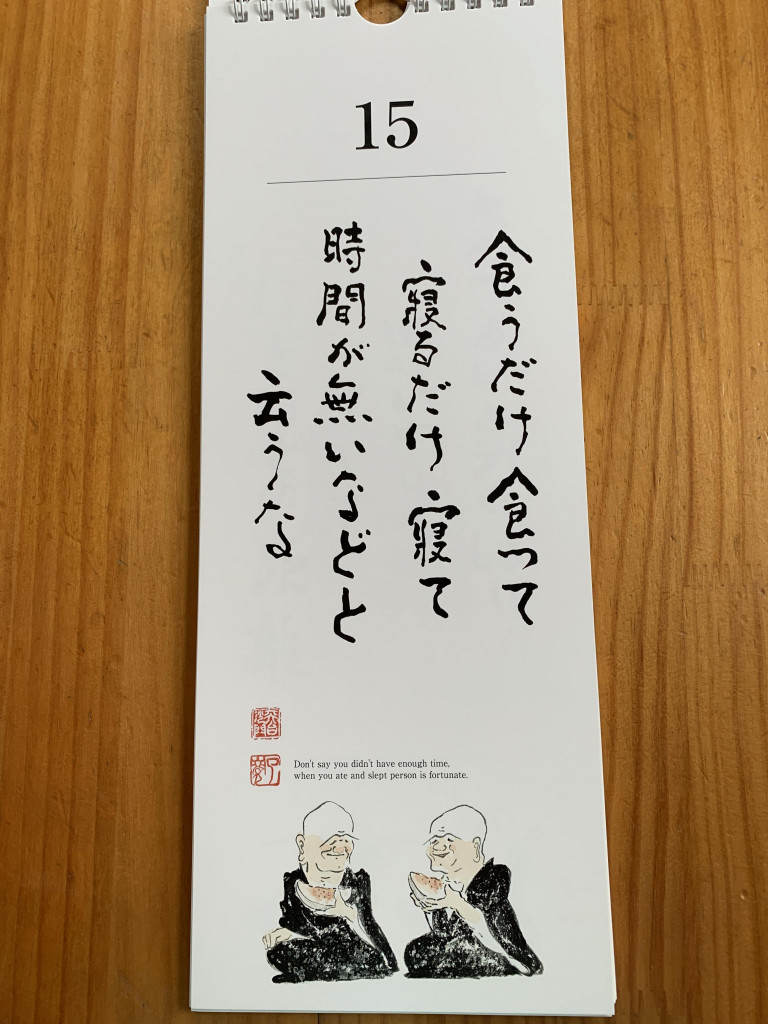 15
食うだけ食って
寝るだけ寝て
時間が無いなどと
云うな
Don't say you didn't have enough time,
when you ate and slept person is fortunate.